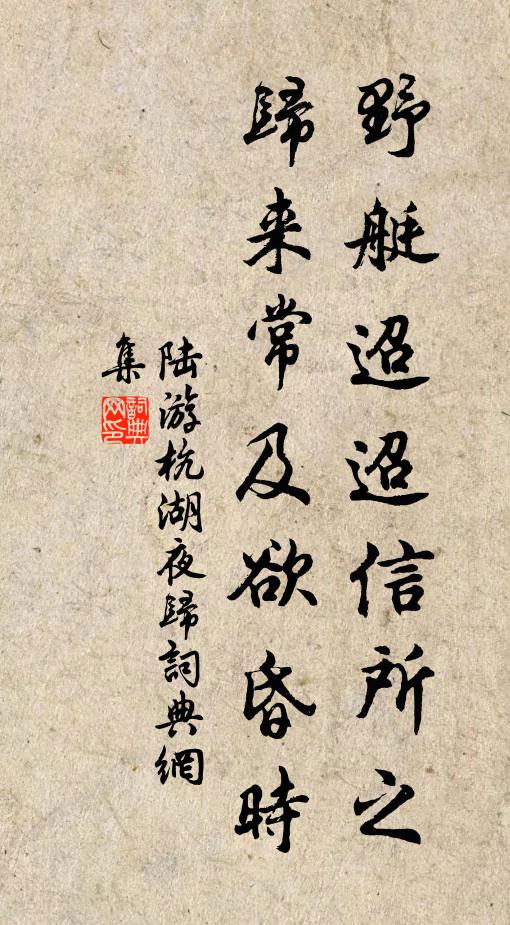 野艇迢迢信所之
歸来常及欲昏時
陸游杭湖夜歸詞典網
集
詞典网印